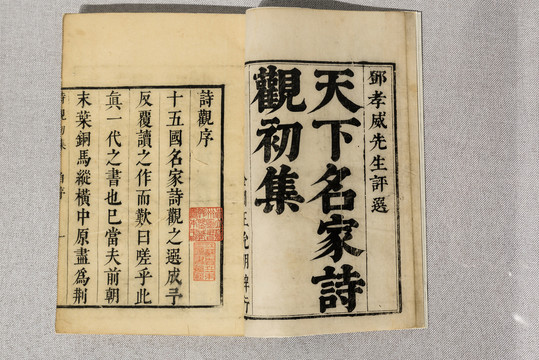 鄧孝威先生評選
天下名家詩
觀初集
詩觀序
十五國名家詩觀之選成予
反覆讀之作而歎曰嗟乎此
眞一代之書也已當夫前朝
末葉銅馬縱橫中原盡爲荆
詩觀初集